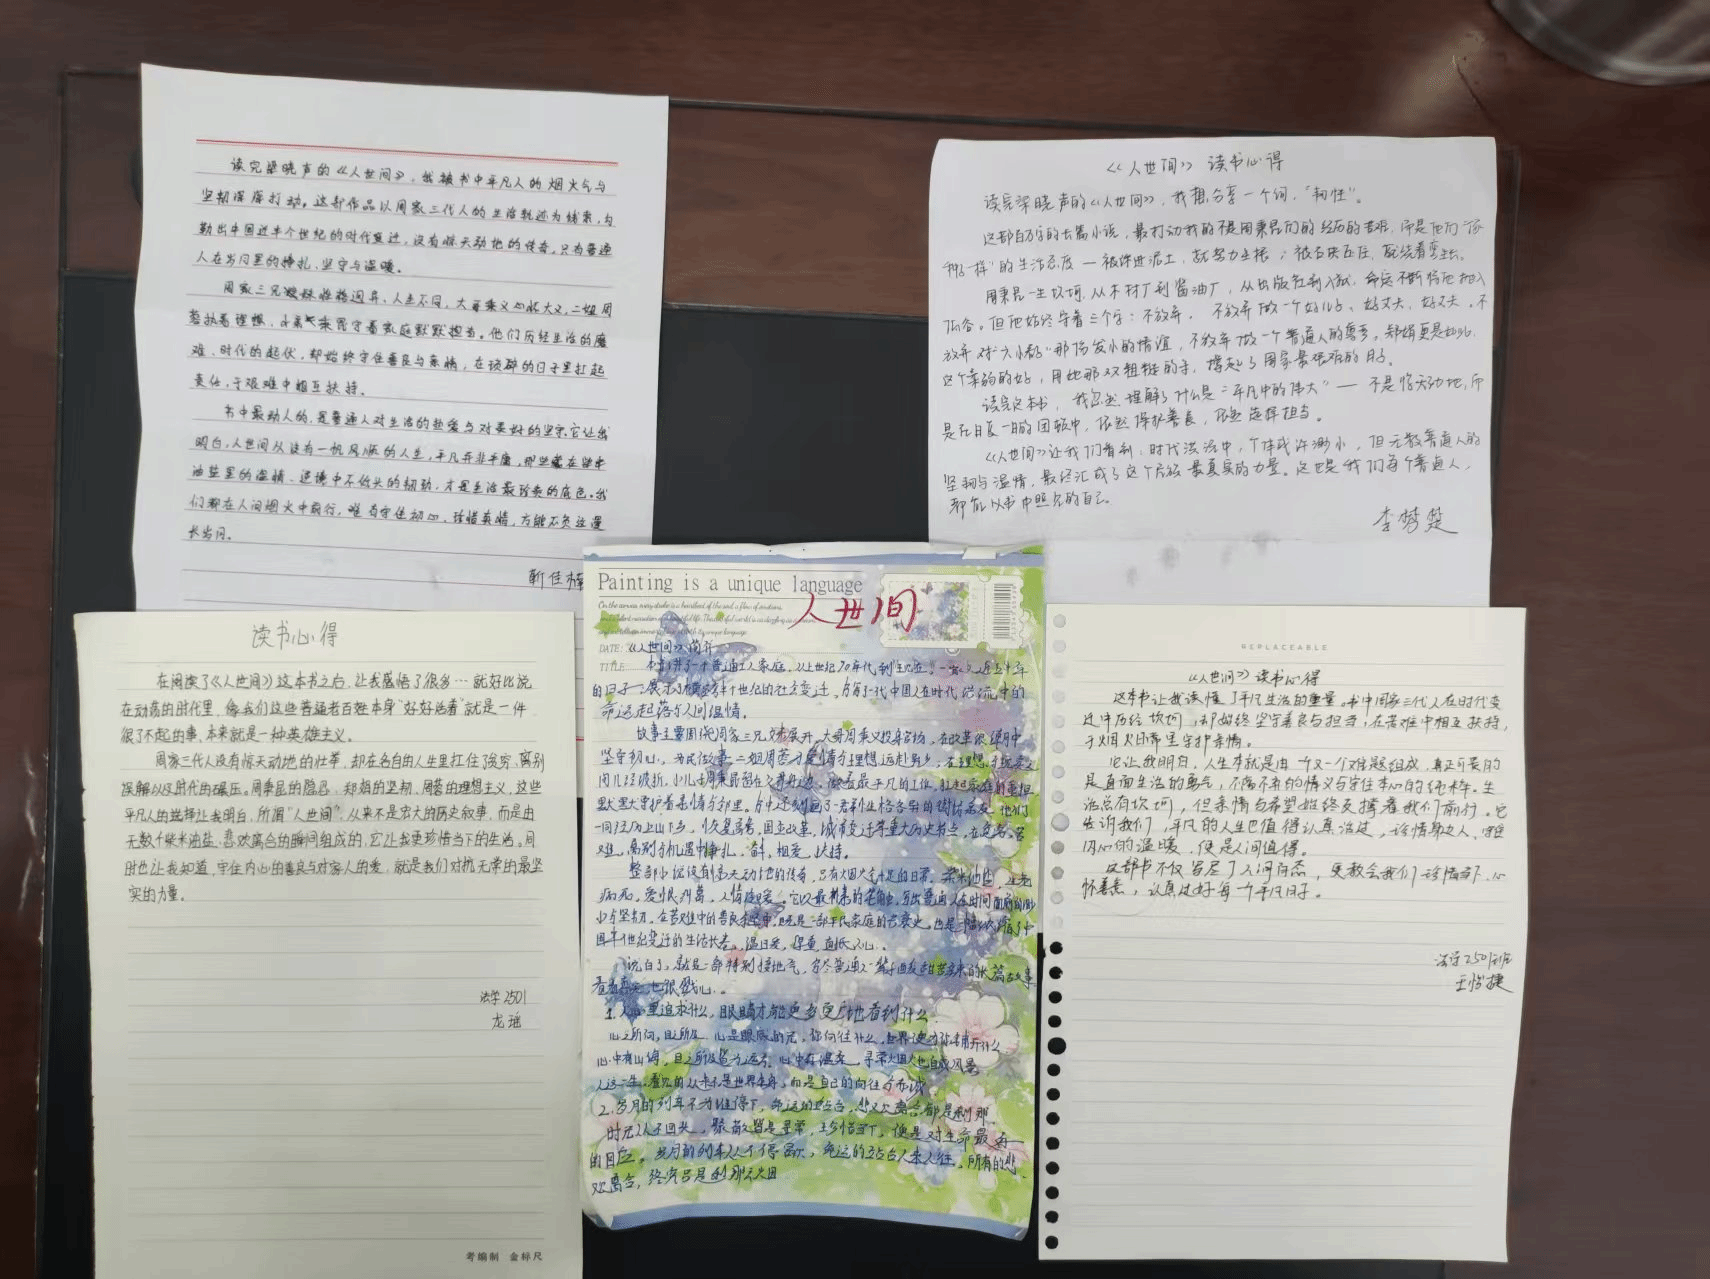 读完梁晓声的《人世间》，我被书中平凡人的烟火气与
坚韧深深打动。这部作品以周家三代人的生活轨迹为线索，勾
勒出中国近半个世纪的时代变迁，没有惊天动地的传奇，只有普通
人在岁月里的挣扎、坚守与温暖。
周家三兄妹性格迥异、人生不同，大哥秉义心怀大义，二姐周
蓉执着理想，小弟秉昆守着家庭默默担当。他们历经生活的磨
难、时代的起伏，却始终守住善良与亲情，在琐碎的日子里扛起
责任，于艰难中相互扶持。
书中最动人的，是普通人对生活的热爱与对美好的坚守。它让我
明白，人世间从没有一帆风顺的人生，平凡并非平庸，那些藏在柴米
油盐里的温情、逆境中不低头的韧劲，才是生活最珍贵的底色。我
们都在人间烟火中前行，唯有守住初心，珍惜真情，方能不负这漫
长岁月。
靳佳楠
《人世间》读书心得
读完梁晓声的《人世间》，我想分享一个词，“韧性”。
这部百万字的长篇小说，最打动我的不是周秉昆们的经历的苦难，而是他们“
种子一样”的生活态度——被踩进泥土，就努力生根；被石块压住，就绕着弯生长。
周秉昆一生坎坷，从木材厂到酱油厂，从出版社到入狱，命运不断将他抛入
低谷。但他始终守着三个字：不放弃，不放弃做一个好儿子、好丈夫、好父亲，不
放弃对“六小君子”那份发小的情谊，不放弃做一个普通人的尊严。郑娟更是如此，
这个柔弱的女，用她那双粗糙的手，撑起了周家最艰难的日子。
读完这本书，我忽然理解了什么是“平凡中的伟大”——不是惊天动地，而
是在日复一日的困顿中，依然保护善良，依然选择担当。
《人世间》让我们看到：时代洪流中，个体或许渺小，但无数普通人的
坚韧与温情，最终汇成了这个民族最真实的力量。这也是我们每个普通人，
都能从书中照见的自己。
李梦楚
读书心得
在阅读了《人世间》这本书之后，让我感悟了很多…就好比说
在动荡的时代里，像我们这些普通老百姓本身“好好活着”就是一件
很了不起的事，本来就是一种英雄主义。
周家三代人没有惊天动地的壮举，却在各自的人生里扛住了贫穷、离别
误解以及时代的碾压。周秉昆的隐忍，郑娟的坚韧、周蓉的理想主义，这些
平凡人的选择让我明白，所谓“人世间”，从来不是宏大的历史叙事，而是由
无数个柴米油盐、悲欢离合的瞬间组成的，它让我更珍惜当下的生活，同
时也让我知道，守住内心的善良与对家人的爱，就是我们对抗无常的最坚
实的力量。
法学2501
龙瑶
考编制 金标尺
Painting is a unique language
人世间
DATE: 《人世间》简介
TITLE: 本书讲了一个普通工人家庭，从上世纪70年代，到现在，近五十年
的日子…展示了横跨半个世纪的社会变迁，月月一代中国人在时代洪流中的
命运起落与人间温情。
故事主要围绕周家三兄妹展开，大哥周秉义投身官场，在改革浪潮中
坚守初心，为民做事，二姐周蓉为爱情与理想远赴贵州，在理想与现实之
间几经波折，小儿子周秉昆留在父母身边，做着最平凡的工作，扛起家庭的重担
里守护着亲情与邻里。书中还刻画了一群性格各异的街坊亲友，他们
一同经历上山下乡，恢复高考，国企改革，城市变迁等重大历史节点，在
难，离别与机遇中挣扎、奋斗，相爱，扶持。
整部小说没有惊天动地的传奇，只有烟火气十足的日常，柴米油盐，生老
病死，爱恨纠葛，人情冷暖。它以最朴素的笔触，写出普通人在时间面前的渺
小与坚韧，在苦难中的善良与坚守，既是一部平民家庭的苦衷史，也是一幅浓缩了中
国半世纪变迁的生活长卷，温暖，厚重，直抵人心。
说白了，就是一部特别接地气，写尽普通人一辈子的酸甜苦辣的长篇故事
看着真实也很戳心。
1.人心里追求什么，眼睛才能更多更广地看到什么
心之所向，目之所及。心是眼底的光，你向往什么，世界便为你铺开什么
心中有山海，目之所及皆为远方，心中有温柔，寻常烟火也自成风景
人这一生，看见的从来不是世界本身，而是自己的向往与赤诚
2.岁月的列车不为谁停下，命运的站台，悲欢离合都是刹那
时光从不回头，聚散皆是寻常，珍惜当下，便是对生命最好
的回应。岁月的列车从不停留，命运的站台人来人往，所有的悲
欢离合，终究只是刹那火
REPLACEABLE
《人世间》读书心得
这本书让我读懂了平凡生活的重量。书中周家三代人在时代变
迁中历经坎坷，却始终坚守善良与担当，在苦难中相互扶持，
于烟火日常里守护亲情。
它让我明白，人生本就是由一个又一个难题组成，真正可贵的
是直面生活的勇气，不离不弃的情义与守住本心的纯粹。生
活总有坎坷，但亲情与希望始终支撑着我们前行。它
告诉我们，平凡的人生也值得认真活过，珍惜身边人，守住
内心的温暖，便是人间值得。
这部书不仅写尽了人间百态，更教会我们珍惜当下，心
怀善意，认真过好每一个平凡日子。
法学2501班
王怡捷